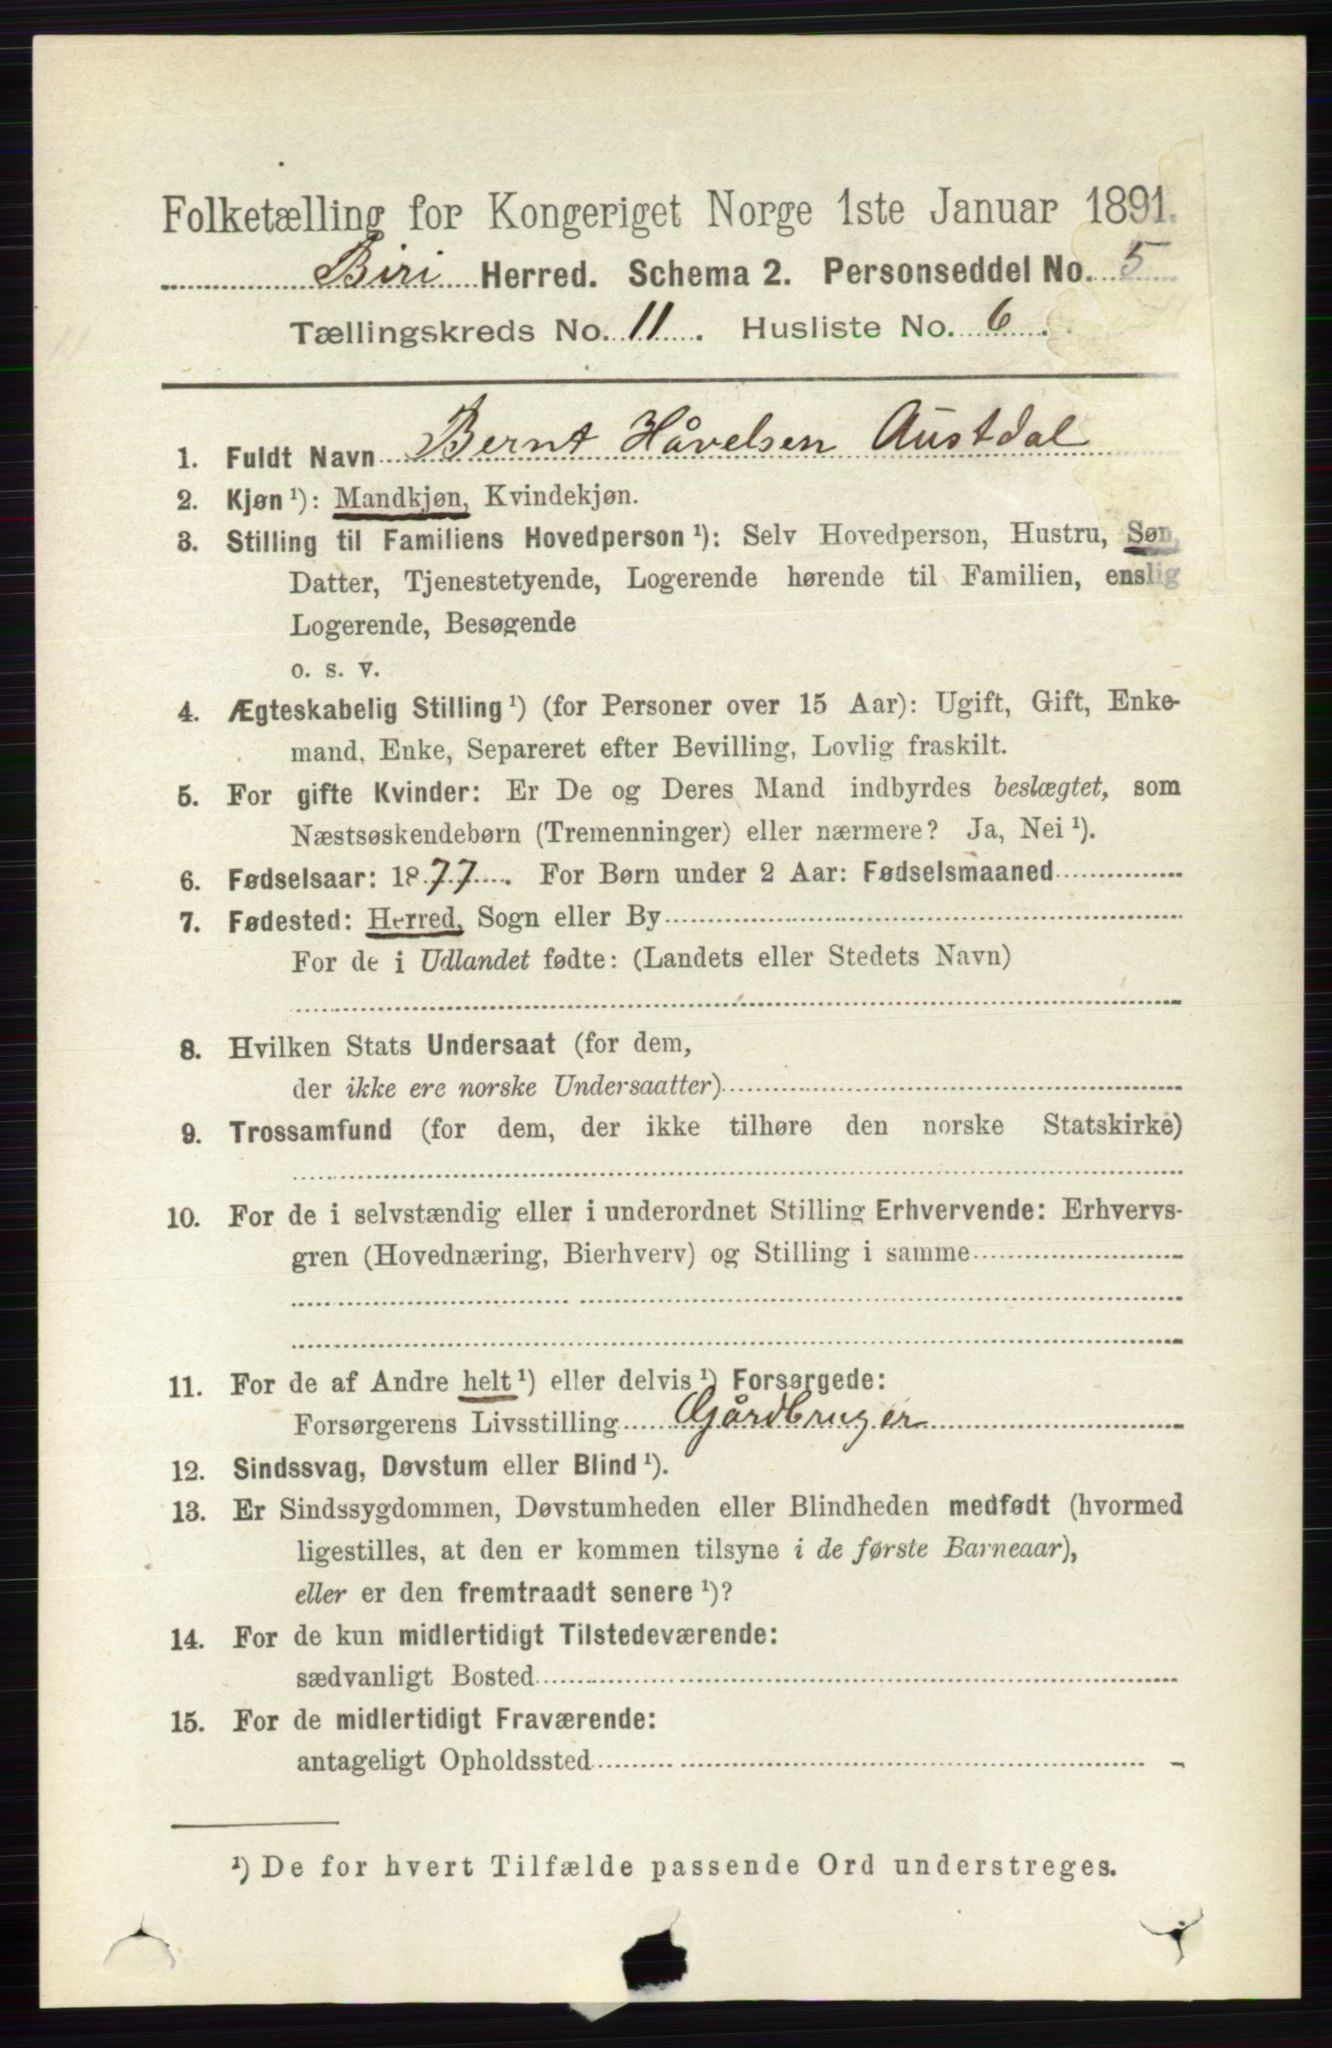 Folketælling for Kongeriget Norge 1ste Januar 1891.
Biri Herred. Schema 2. Personseddel No. 5
Tællingskreds No. 11. Husliste No. 6.
1. Fuldt Navn Bernt Håvelsen Austdal
2. Kjøn ¹): Mandkjøn, Kvindekjøn.
3. Stilling til Familiens Hovedperson ¹): Selv Hovedperson, Hustru, Søn,
Datter, Tjenestetyende, Logerende hørende til Familien, enslig
Logerende, Besøgende
o. s. v.
4. Ægteskabelig Stilling ¹) (for Personer over 15 Aar): Ugift, Gift, Enke-
mand, Enke, Separeret efter Bevilling, Lovlig fraskilt.
5. For gifte Kvinder: Er De og Deres Mand indbyrdes beslægtet, som
Næstsøskendebørn (Tremenninger) eller nærmere? Ja, Nei ¹).
6. Fødselsaar: 1877. For Børn under 2 Aar: Fødselsmaaned
7. Fødested: Herred, Sogn eller By
For de i Udlandet fødte: (Landets eller Stedets Navn)
8. Hvilken Stats Undersaat (for dem,
der ikke ere norske Undersaatter)
9. Trossamfund (for dem, der ikke tilhøre den norske Statskirke)
10. For de i selvstændig eller i underordnet Stilling Erhvervende: Erhvervs-
gren (Hovednæring, Bierhverv) og Stilling i samme
11. For de af Andre helt ¹) eller delvis ¹) Forsørgede:
Forsørgerens Livsstilling Gårdbruger
12. Sindssvag, Døvstum eller Blind ¹).
13. Er Sindssygdommen, Døvstumheden eller Blindheden medfødt (hvormed
ligestilles, at den er kommen tilsyne i de første Barneaar),
eller er den fremtraadt senere ¹)?
14. For de kun midlertidigt Tilstedeværende:
sædvanligt Bosted
15. For de midlertidigt Fraværende:
antageligt Opholdssted
¹) De for hvert Tilfælde passende Ord understreges.